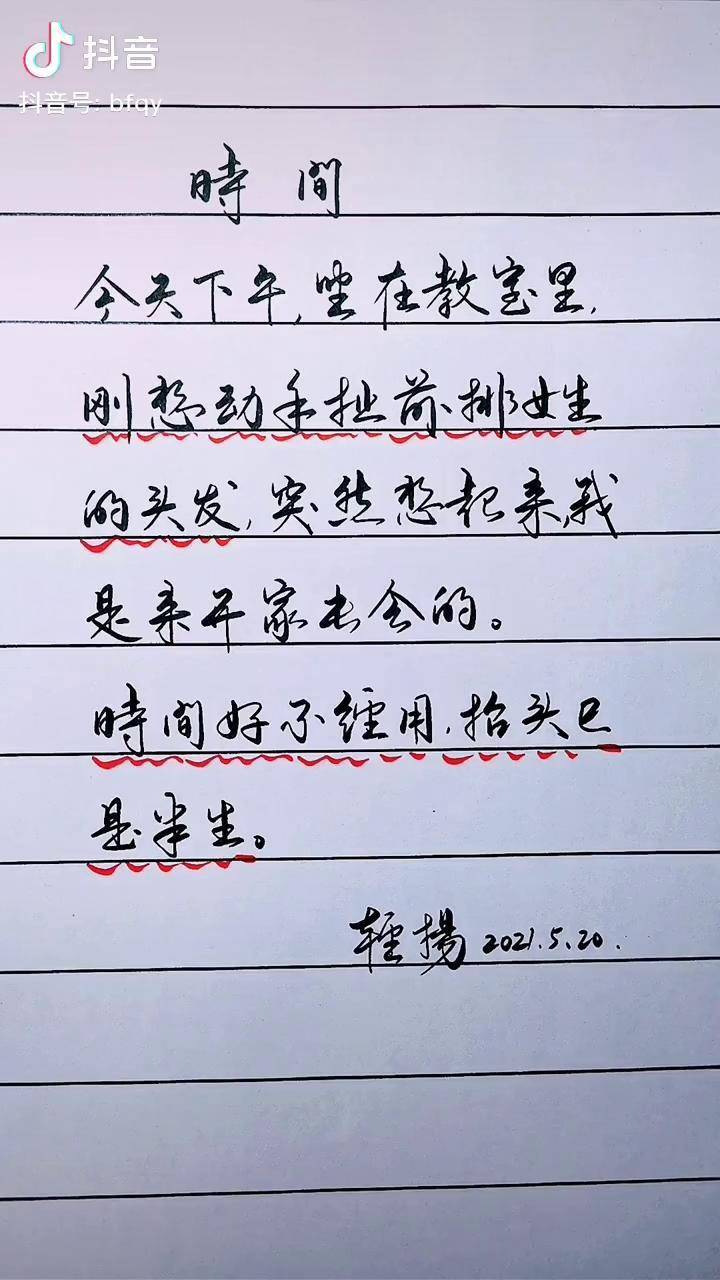 抖音
抖音号: bfqy
時間
今天下午,坐在教室里,
刚想动手扯前排女生
的头发,突然想起来,我
是来开家长会的。
時间好不經用,抬头已
是半生。
輕揚 2021.5.20.